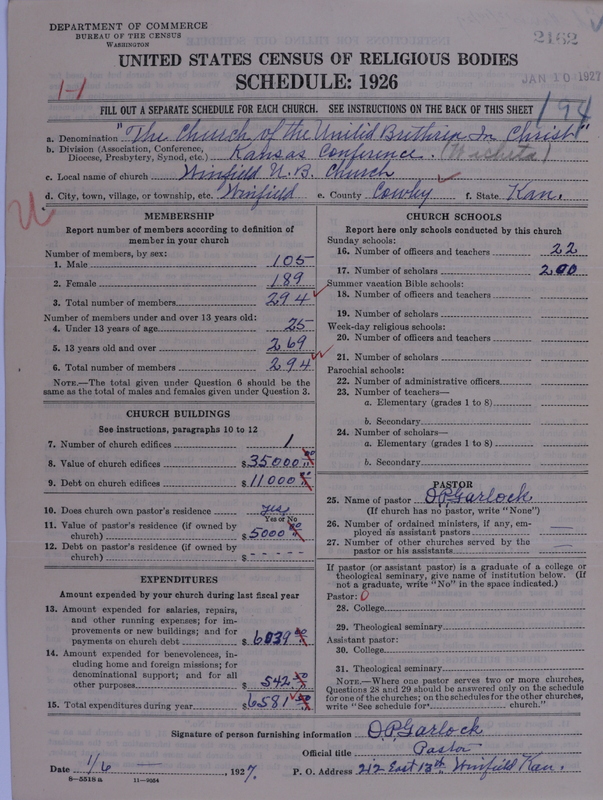 DEPARTMENT OF COMMERCE
BUREAU OF THE CENSUS
WASHINGTON
2162
UNITED STATES CENSUS OF RELIGIOUS BODIES
JAN 10 1927
SCHEDULE: 1926
1-1
FILL OUT A SEPARATE SCHEDULE FOR EACH CHURCH. SEE INSTRUCTIONS ON THE BACK OF THIS SHEET
194
a. Denomination "The Church of the United Brethren In Christ"
b. Division (Association, Conference, Diocese, Presbytery, Synod, etc.) Kansas Conference. (Wichita)
c. Local name of church Winfield U.B. Church
d. City, town, village, or township, etc. Winfield e. County Cowley f. State Kan.
MEMBERSHIP
Report number of members according to definition of member in your church
Number of members, by sex:
1. Male 105
2. Female 189
3. Total number of members 294
Number of members under and over 13 years old:
4. Under 13 years of age 25
5. 13 years old and over 269
6. Total number of members 294
NOTE.—The total given under Question 6 should be the same as the total of males and females given under Question 3.
CHURCH BUILDINGS
See instructions, paragraphs 10 to 12
7. Number of church edifices 1
8. Value of church edifices $35000.00
9. Debt on church edifices $11000
10. Does church own pastor's residence yes
Yes or No
11. Value of pastor's residence (if owned by church) $5000 00
12. Debt on pastor's residence (if owned by church) $ - - - -
EXPENDITURES
Amount expended by your church during last fiscal year
13. Amount expended for salaries, repairs, and other running expenses; for improvements or new buildings; and for payments on church debt $6039
14. Amount expended for benevolences, including home and foreign missions; for denominational support; and for all other purposes $542
15. Total expenditures during year $6581
CHURCH SCHOOLS
Report here only schools conducted by this church
Sunday schools:
16. Number of officers and teachers 22
17. Number of scholars 200
Summer vacation Bible schools:
18. Number of officers and teachers
19. Number of scholars
Week-day religious schools:
20. Number of officers and teachers
21. Number of scholars
Parochial schools:
22. Number of administrative officers
23. Number of teachers—
a. Elementary (grades 1 to 8)
b. Secondary
24. Number of scholars—
a. Elementary (grades 1 to 8)
b. Secondary
PASTOR
25. Name of pastor O.P. Garlock
(If church has no pastor, write "None")
26. Number of ordained ministers, if any, employed as assistant pastors
27. Number of other churches served by the pastor or his assistants
If pastor (or assistant pastor) is a graduate of a college or theological seminary, give name of institution below. (If not a graduate, write "No" in the space indicated.)
Pastor: 0
28. College
29. Theological seminary
Assistant pastor:
30. College
31. Theological seminary
NOTE.—Where one pastor serves two or more churches, Questions 28 and 29 should be answered only on the schedule for one of the churches; on the schedules for the other churches, write "See schedule for church."
Signature of person furnishing information O.P. Garlock
Official title Pastor
Date 1/6 — , 1927. P. O. Address 212 East 13th Winfield Kan.
8—5518a 11—9054